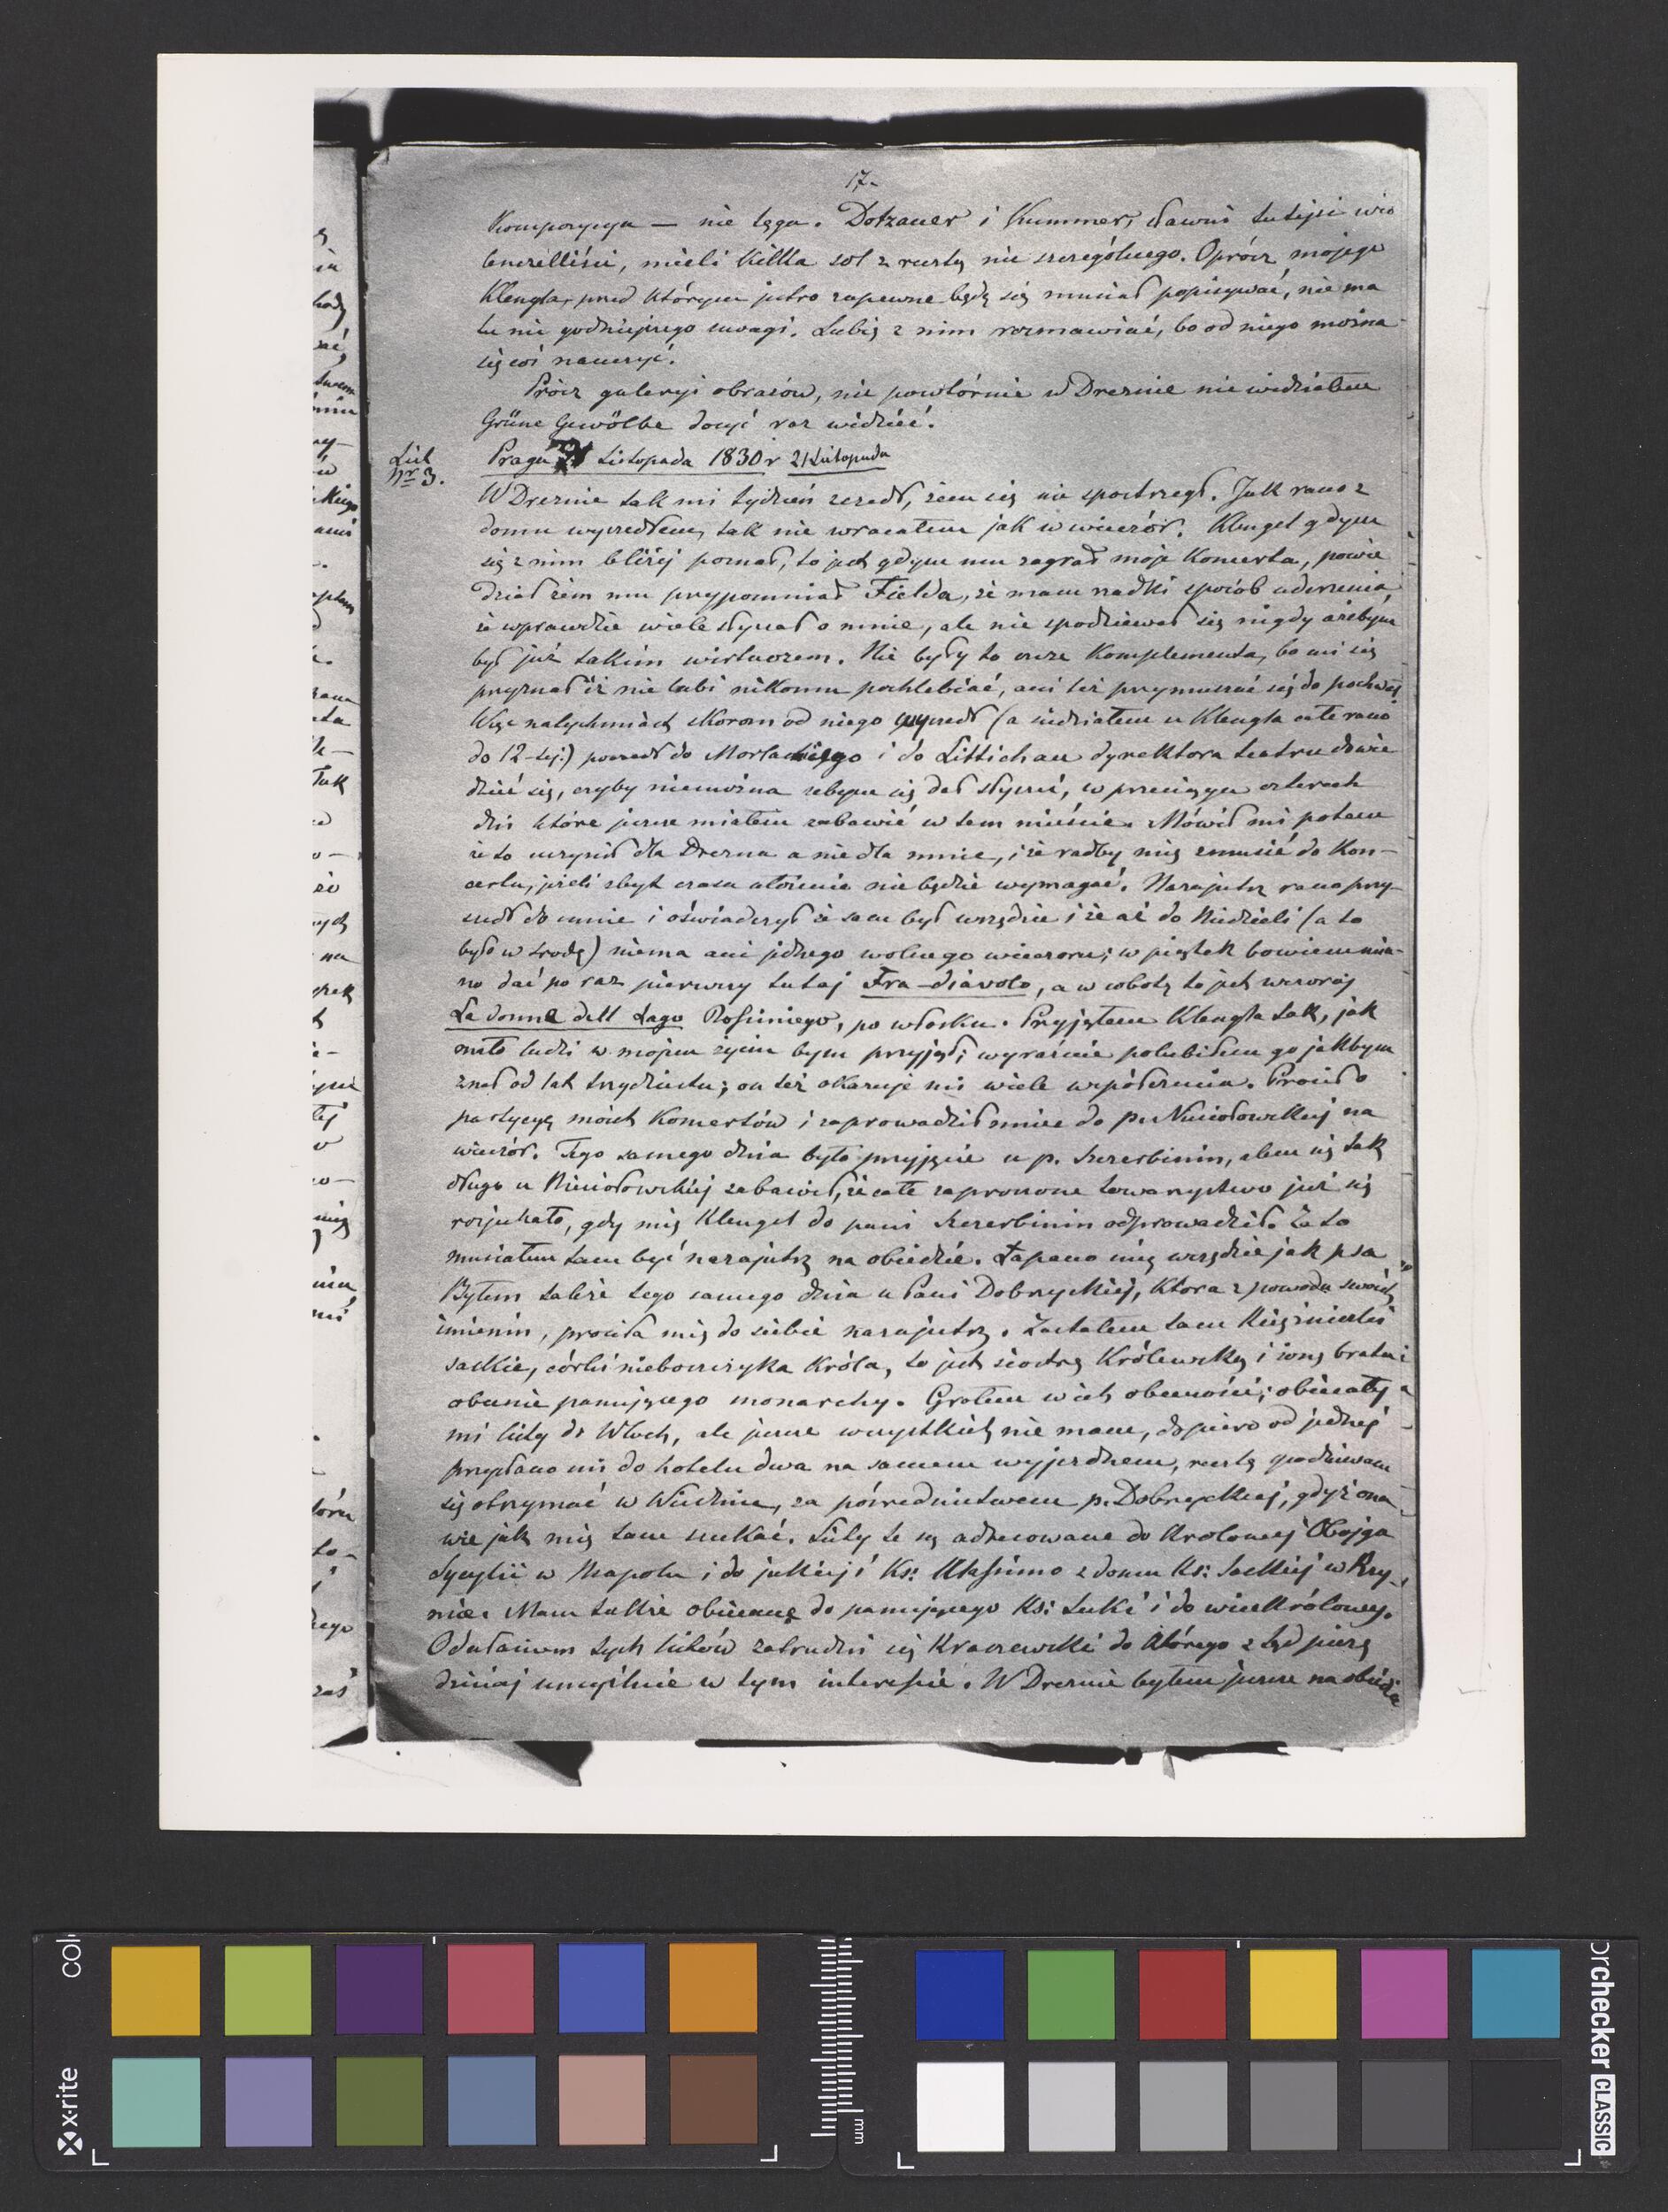 17.
Kompozycya — nie tęga. Dotzauer i Kummer, sławni tutejsi wio
lenczelliści, mieli kilka sol z resztą nic szczególnego. Oprócz mojego
Klengla, przed którym jutro zapewne będę się musiał popisywać, nie ma
tu nic godniejszego uwagi. Lubię z nim rozmawiać, bo od niego można
się coś nauczyć.
Prócz galeryi obrazów, nic powtórnie w Dreznie nie widziałem
Grüne Gewölbe dosyć raz widzieć.
List
Nr 3.
Praga Listopada 1830 r 21 Listopada
W Dreznie tak mi tydzień zszedł, żem się nie spostrzegł. Jak rano z
domu wyszedłem, tak nie wracałem jak w wieczór. Klengel gdym
się z nim bliżej poznał, to jest gdym mu zagrał moje koncerta, powie
dział żem mu przypomniał Fielda, że mam rzadki sposób uderzenia,
że wprawdzie wiele słyszał o mnie, ale nie spodziewał się nigdy ażebym
był już takim wirtuozem. Nie były to czcze komplementa, bo mi się
przyznał iż nie lubi nikomu pochlebiać, ani też przymuszać się do pochwał
Więc natychmiast skorom od niego wyszedł (a siedziałem u Klengla całe rano
do 12-tej.) poszedł do Morlackiego i do Littichau dyrektora teatru dowie
dzieć się, czyby niemożna żebym się dał słyszeć, w przeciągu czterech
dni które jeszcze miałem zabawić w tem mieście. Mówił mi potem
że to uczynił dla Drezna a nie dla mnie, i że radby mię zmusić do kon-
certu, jeżeli zbyt czasu ułożenie nie będzie wymagać. Nazajutrz rano przy-
szedł do mnie i oświadczył że sam był wszędzie i że aż do Niedzieli (a to
było w środę) niema ani jednego wolnego wieczoru; w piątek bowiem mia-
no dać po raz pierwszy tutaj Fra-diavolo, a w sobotę to jest wczoraj
La donna dell Lago Rossiniego, po włosku. Przyjąłem Klengla tak, jak
mało ludzi w mojem życiu bym przyjął; wyraźnie polubiłem go jakbym
znał od lat trzydziestu; on też okazuje mi wiele współczucia. Prosił o
partycyę moich koncertów i zaprowadził mnie do p. Niesiołowskiej na
wieczór. Tego samego dnia było przyjęcie u p. Szczerbinin, alem się tak
długo u Niesiołowskiej zabawił, że całe zaproszone towarzystwo już się
rozjechało, gdy mię Klengel do pani Szczerbinin odprowadził. Za to
musiałem tam być nazajutrz na obiedzie. Łapano mię wszędzie jak psa
Byłem także tego samego dnia u Pani Dobrzyckiej, która z powodu swoich
imienin, prosiła mię do siebie nazajutrz. Zastałem tam Księżniczki
saskie, córki nieboszczyka Króla, to jest siostrę Królewską i żonę brata
obecnie panującego monarchy. Grałem w ich obecności; obiecały
mi listy do Włoch, ale jeszcze wszystkich nie mam, dopiero od jednej
przysłano mi do hotelu dwa na samem wyjezdnem, resztę spodziewam
się otrzymać w Wiedniu, za pośrednictwem p. Dobrzyckiej, gdyż ona
wie jak mię tam szukać. Listy te są adresowane do Królowej Obojga
Sycylii w Neapolu i do jakiejś Ks: Ulasimo z domu Ks: Saskiej w Rzy-
mie. Mam także obiecane do panującego Ksi: Luki i do wicekrólowej.
Odesłaniem tych listów zatrudni się Kraszewski do którego z tąd piszę
dzisiaj umyślnie w tym interesie. W Dreznie byłem jeszcze na obiedzie